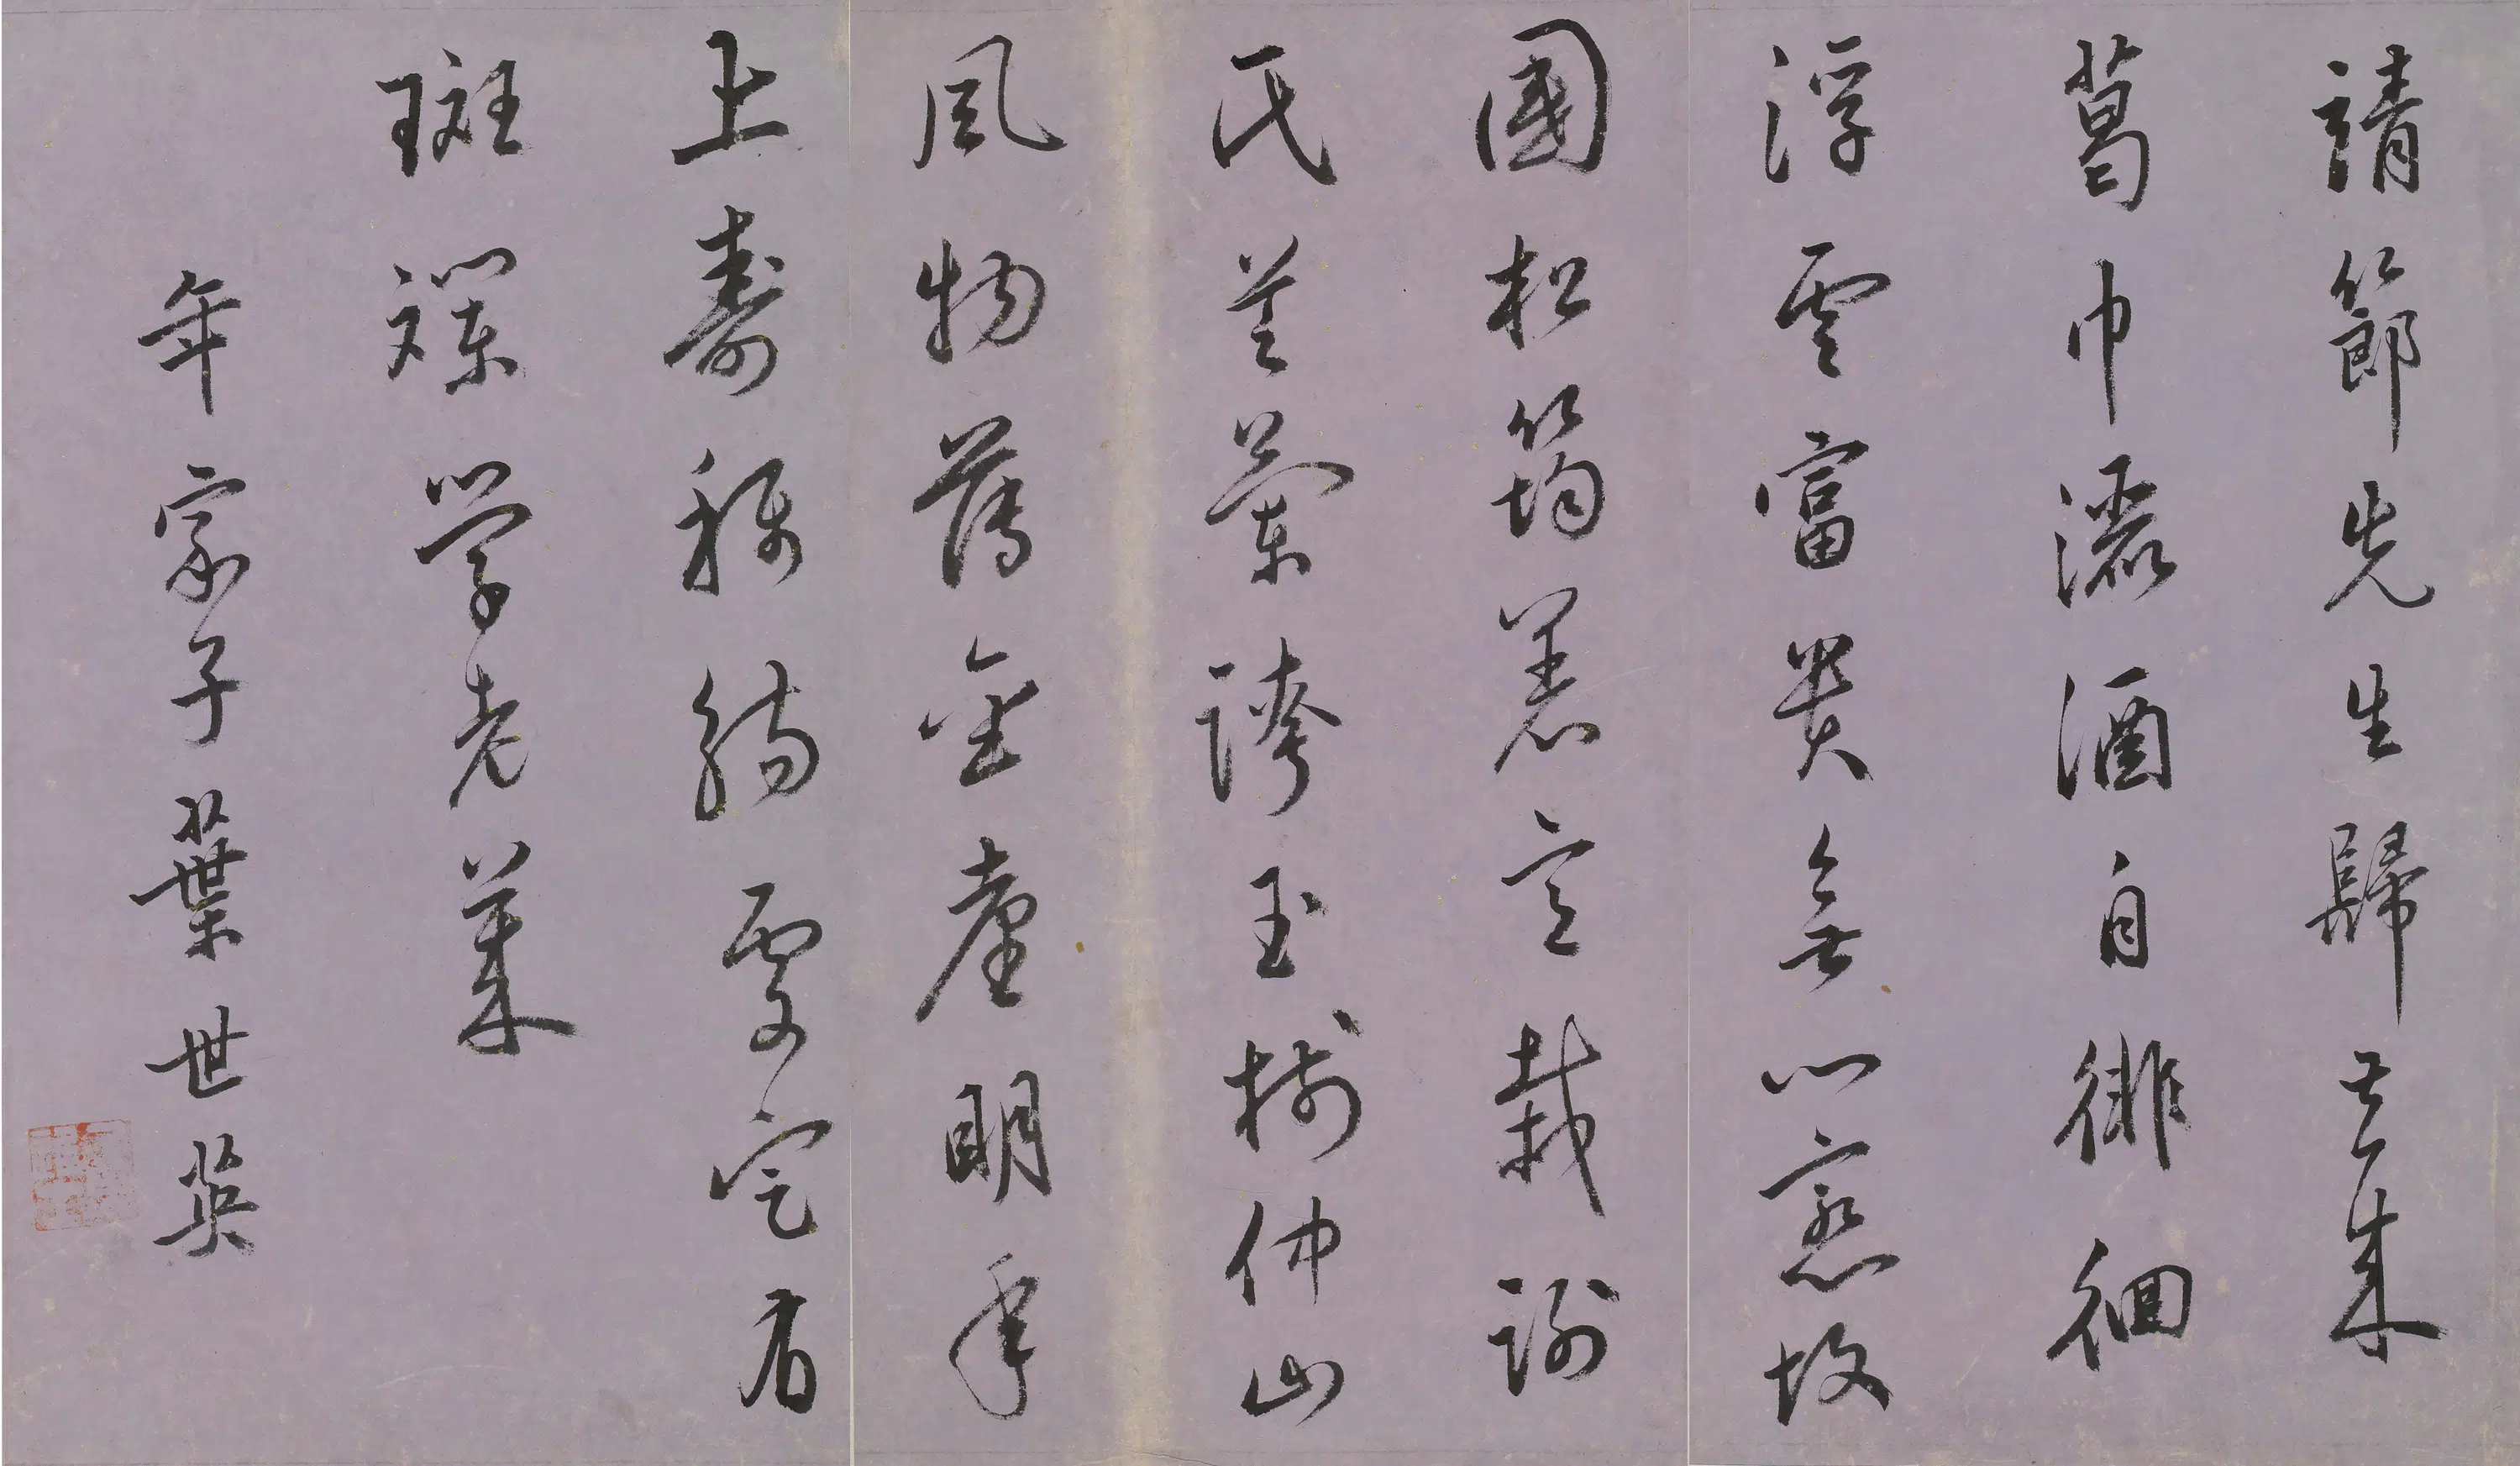 靖節先生歸去来
葛巾漉酒自徘徊
浮雲富貴無心戀故
園松筠著意栽謝
氏芝蘭誇玉樹仲山
風物薦金臺明年
上壽稱觴處定有
斑斕學老萊
年家子葉世英